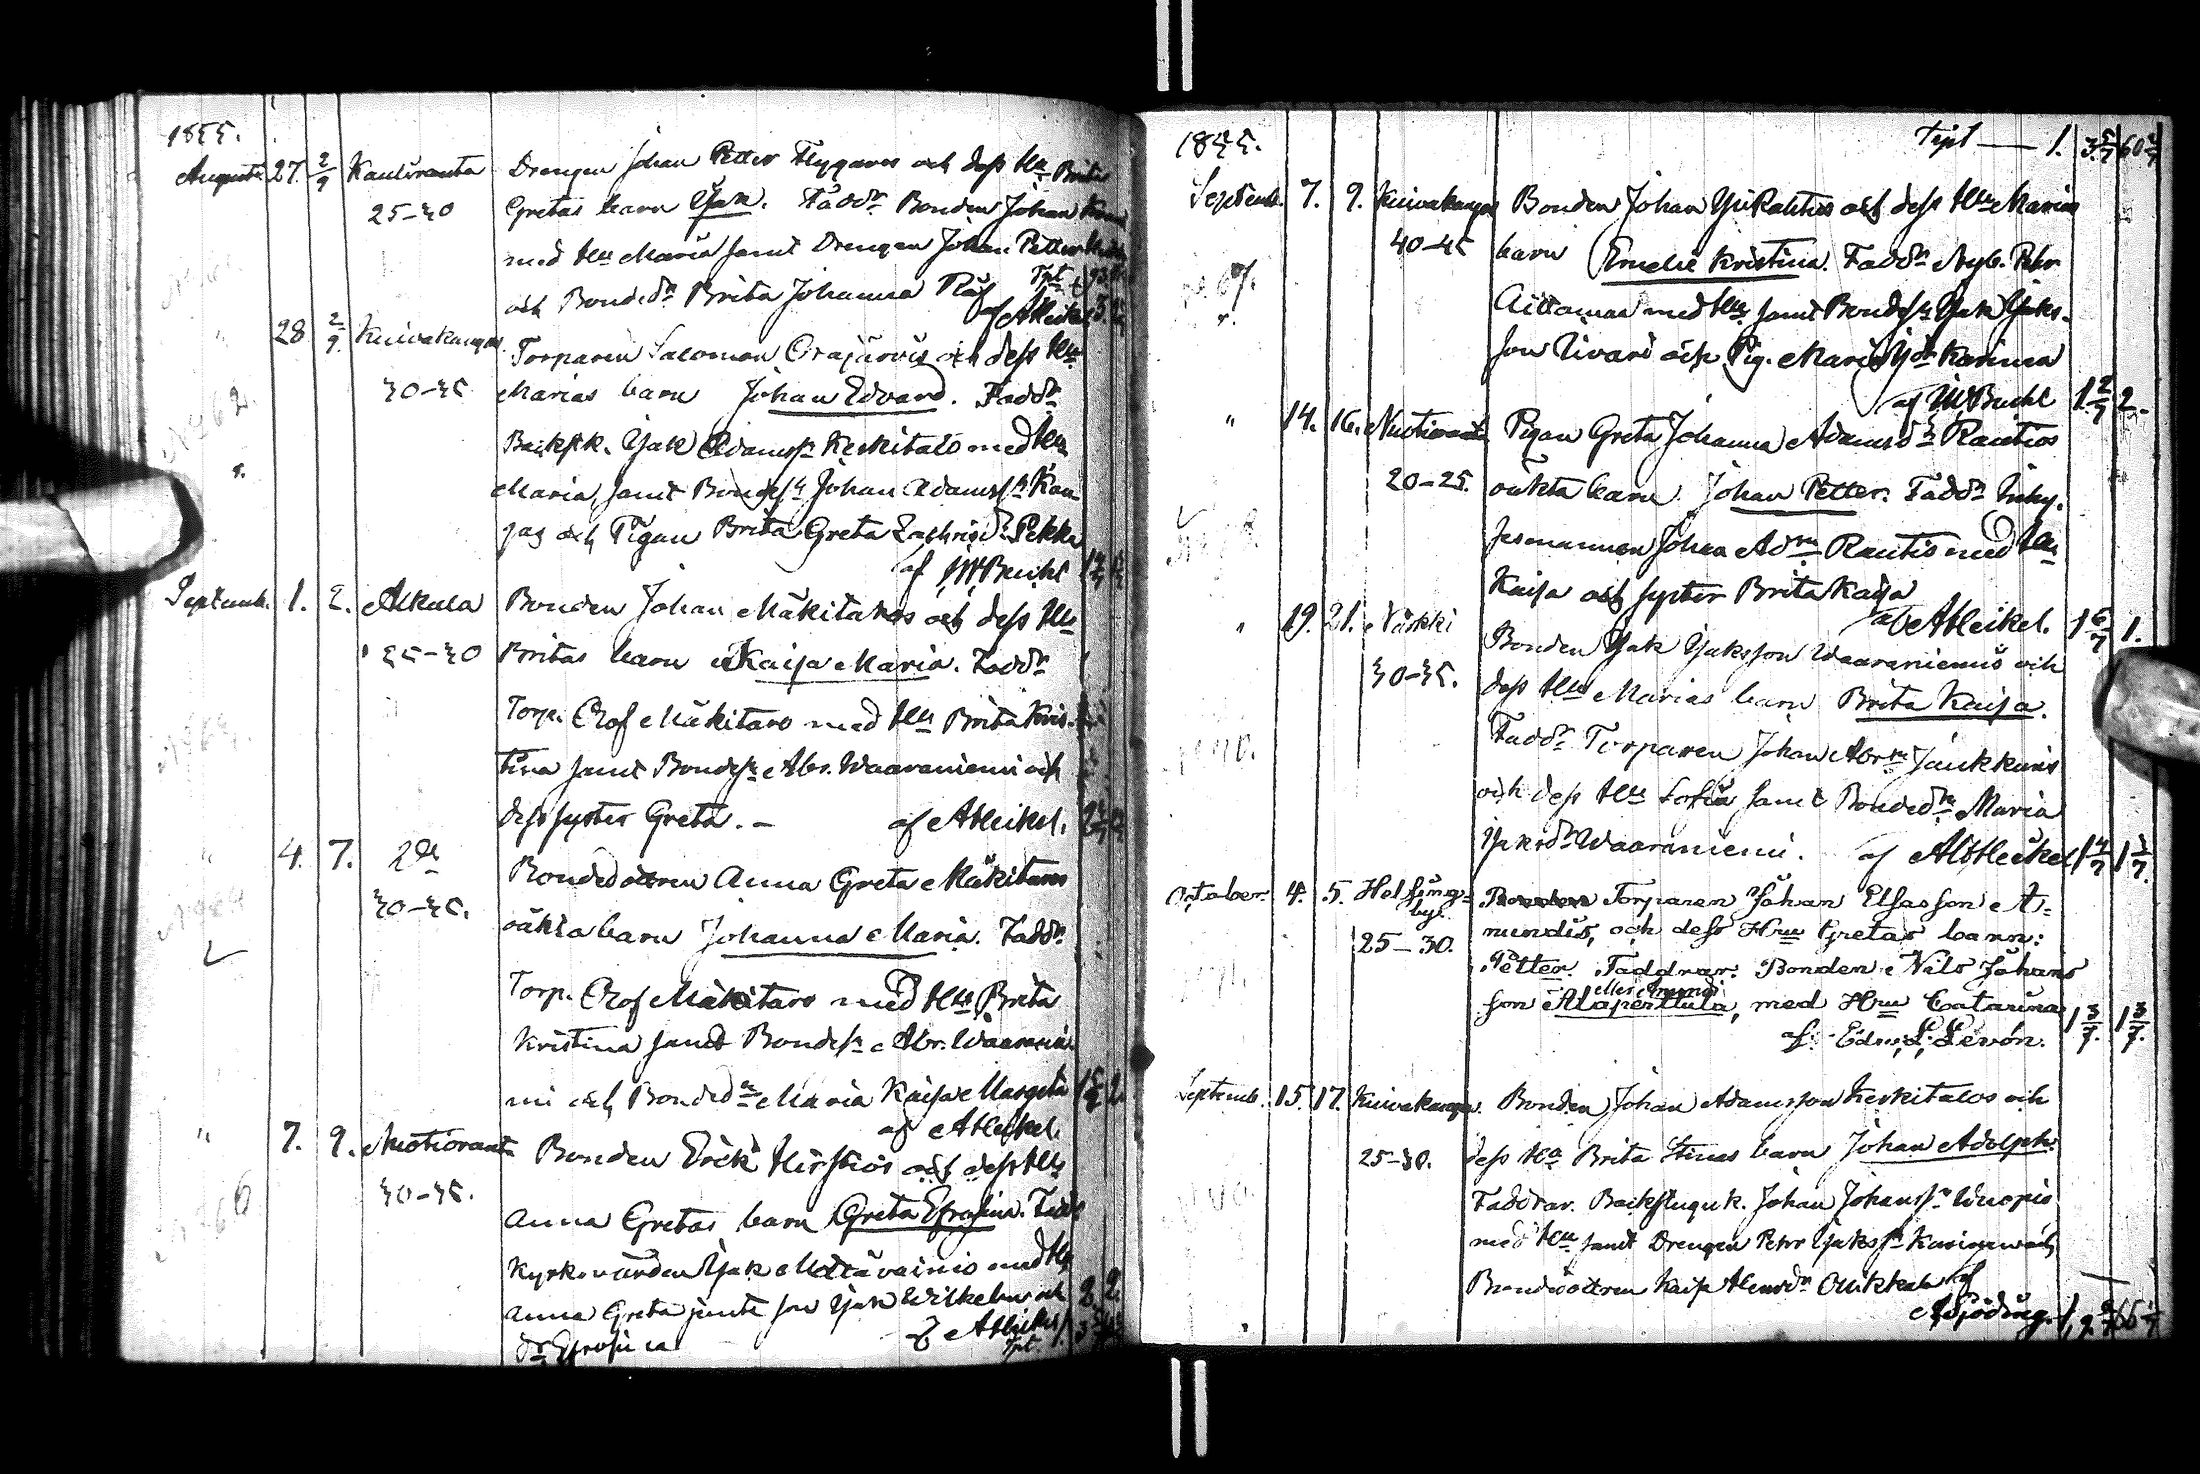 1855.
August. 27. 2/9 Kauliranta Drengen Johan Petter Flygares och dess Hu Brita
25-30 Gretas barn Isak. Faddr Bonden Johan
med Hu Maria samt Drengen Johan Petter
och Bondedr Brita Johanna Räf Tpt
af A Heikel
" 28 2/9. Kuivakangas Torparen Salomon Orajärvis och dess Hu
30-35 Marias barn Johan Edvard. Faddr
Backstk. Isak Adamss. Keskitalo med Hu
Maria, samt Bondes. Johan Adamss. Kan-
gas och Pigan Brita Greta Zachrisdr. Pekka
af Bucht
Septemb. 1. 2. Alkula Bonden Johan Mäkitalos och dess Hu
25-30 Britas barn Kaisa Maria. Faddr
Torp. Olof Mäkitalo med Hu Brita Kris-
tina samt Bondes. Abr. Waaraniemi och
dess syster Greta. - af A Heikel.
" 4. 7. Do
Bondedottren Anna Greta Mäkitalos
30-35. oäkta barn Johanna Maria. Faddr
Torp. Olof Mäkitalo med Hu Brita
Kristina samt Bondes. Abr. Waaranie-
mi och Bondedr Maria Kaisa Margeta
af A Heikel.
" 7. 9. Nuotioranta Bonden Erick Hirstiös och dess Hu
30-35. Anna Gretas barn Greta Efrosina. Fadd
Kyrkovärden Isak Mettävainio med Hu
Anna Greta jemte son Isak Wilhelm och
dr Efrosina af A Heikel
Tpt.
1855. Tpt — 1. 3 5/7 60
Septemb. 7. 9. Kuivakangas Bonden Johan YliRautios och dess Hu Marias
40-45 barn Emelie Kristina. Faddr Nyb. Pehr
Aittamaa med Hu samt Bondes. Isak Isaks-
son Livari och Pig. Maria Karinen
af Bucht 1 2/7 2-
" 14. 16. Nuotioranta Pigan Greta Johanna Adamsdr Rautios
20-25. oäkta barn Johan Petter. Faddr Inhy-
sesmannen Johan Adm Rautio med Hu
Kaisa och syster Brita Kaisa
af A Heikel. 1 6/7 1.
" 19. 21. Närkki Bonden Isak Isaksson Waaraniemis och
30-35. dess Hu Marias barn Brita Kaisa.
Faddr Torparen Johan Abrm Jänkkuris
och dess Hu Sofia samt Bondedr Maria
Isaksdr Waaraniemi. af AB Heikel 1 4/7 1 1/7.
October. 4. 5. Helsing-
by. Torparen Johan Elsasson A-
25-30. mundis, och dess Hru Gretas barn:
Petter. Faddrar: Bonden Nils Johans
eller Amundi
son Alapenttula, med Hru Catarina
af Edw. L. Levón. 1 3/7. 1 3/7.
Septemb. 15. 17. Kuivakangas. Bonden Johan Adamsson Keskitalos och
25-30. dess Hu Brita Stinas barn Johan Adolph.
Faddrar. Backstuguk. Johan Johanss. Wuopio
med Hu samt Drengen Pehr Isakss. Karinen och
Bondedottren Kaisa Henrsdr Ollikkala af
A Sjöding.